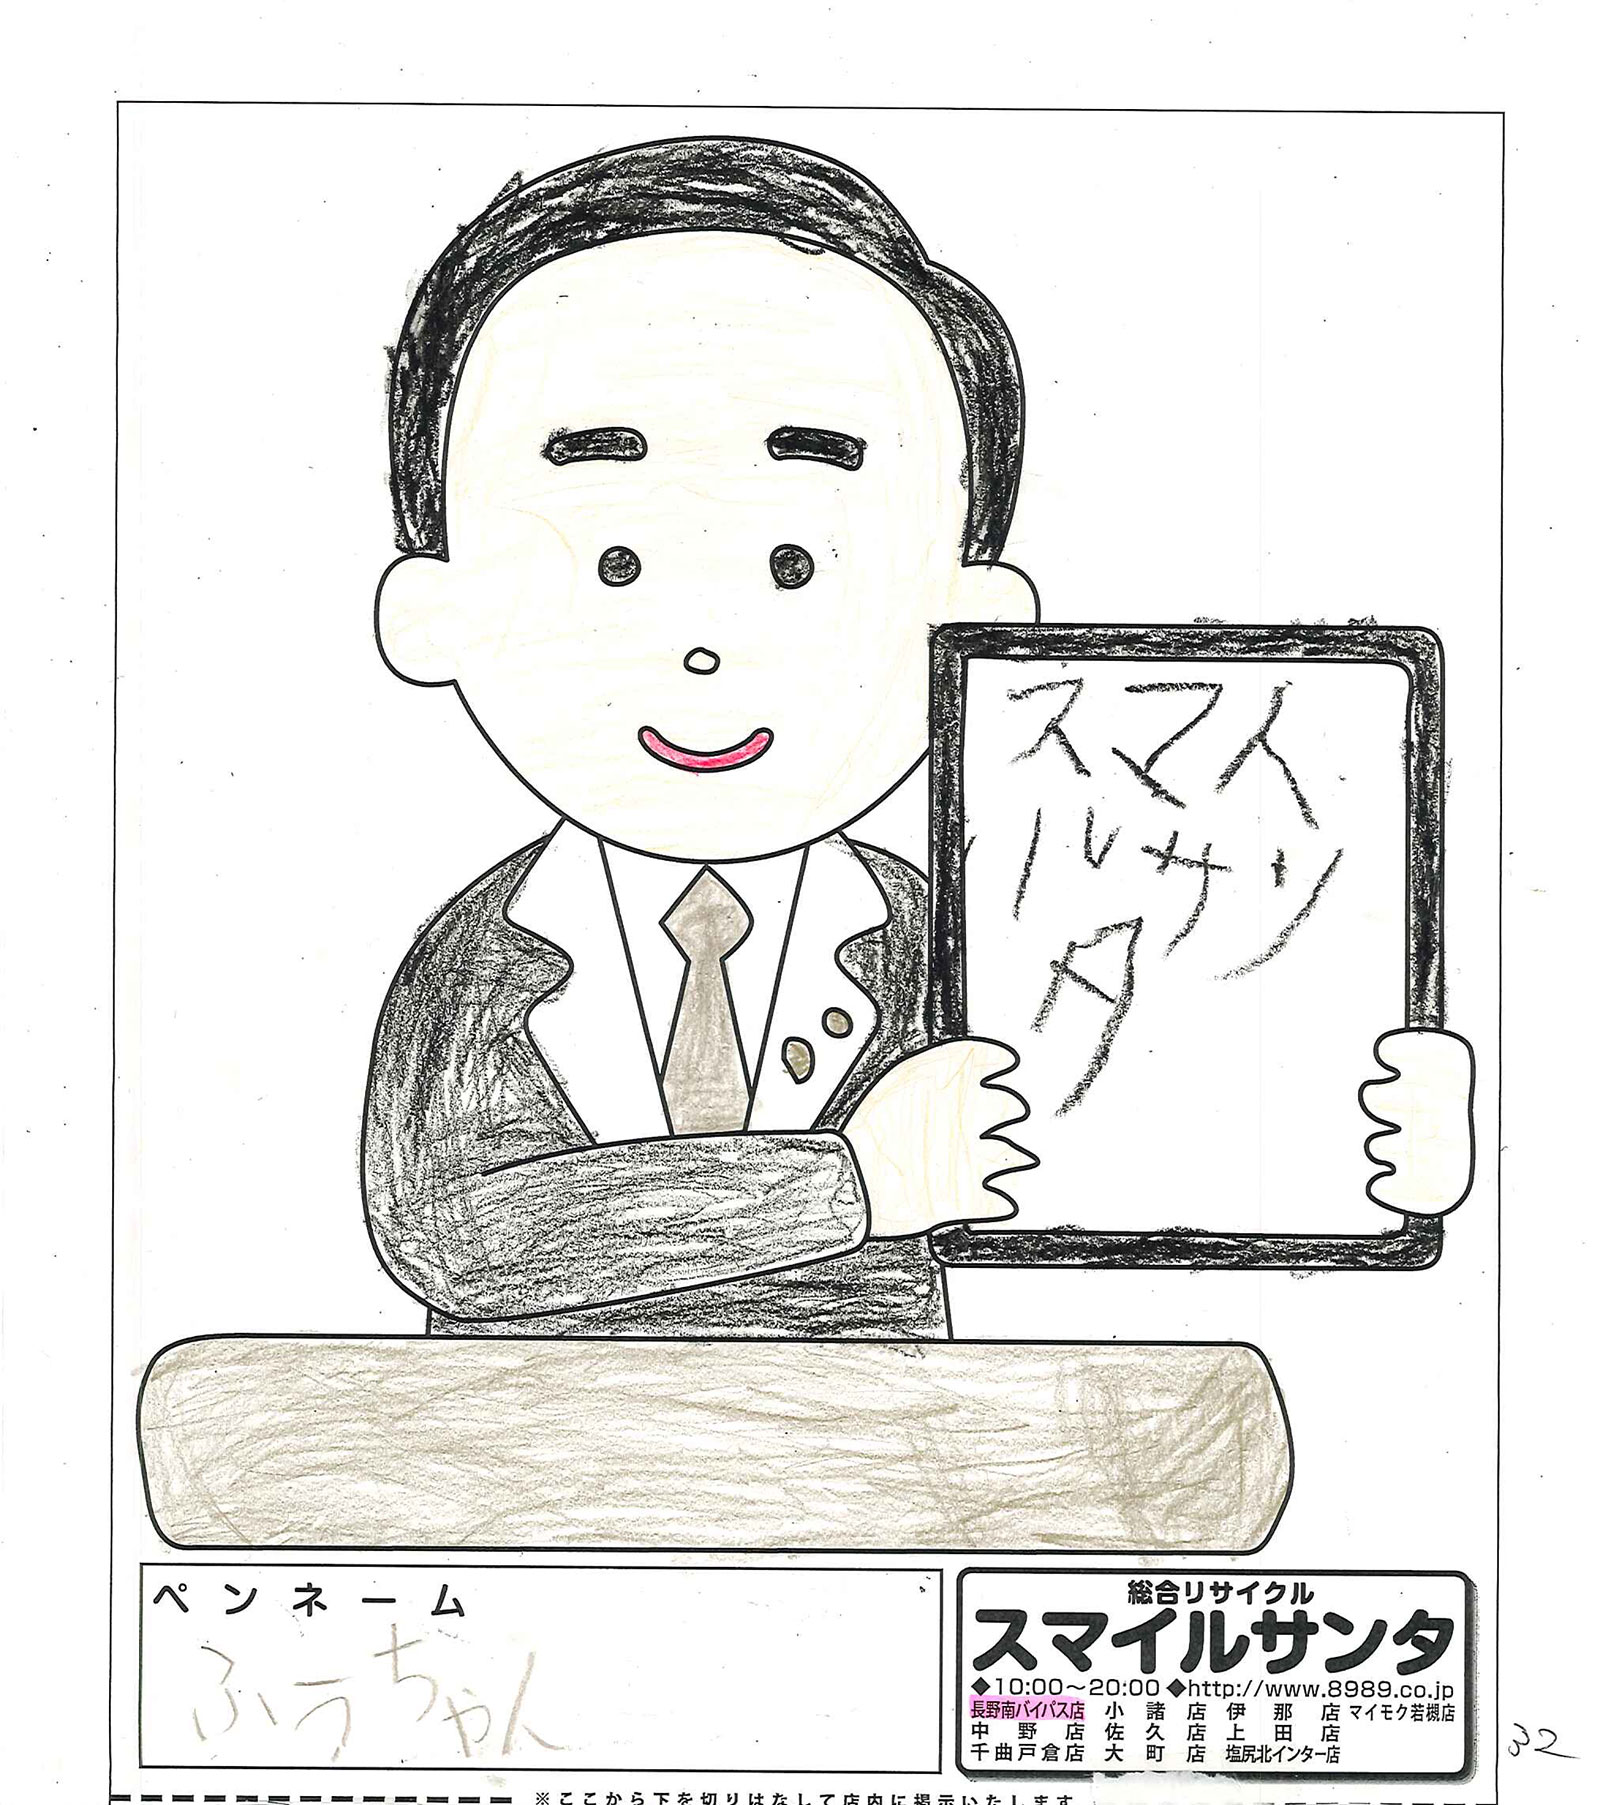 スマイ
ルサン
タ
ペンネーム
ふうちゃん
総合リサイクル
スマイルサンタ
◆10:00～20:00 ◆http://www.8989.co.jp
長野南バイパス店 小諸店 伊那店 マイモク若槻店
中野店 佐久店 上田店
千曲戸倉店 大町店 塩尻北インター店
32
※ここから下を切りはなして店内に掲示いたします